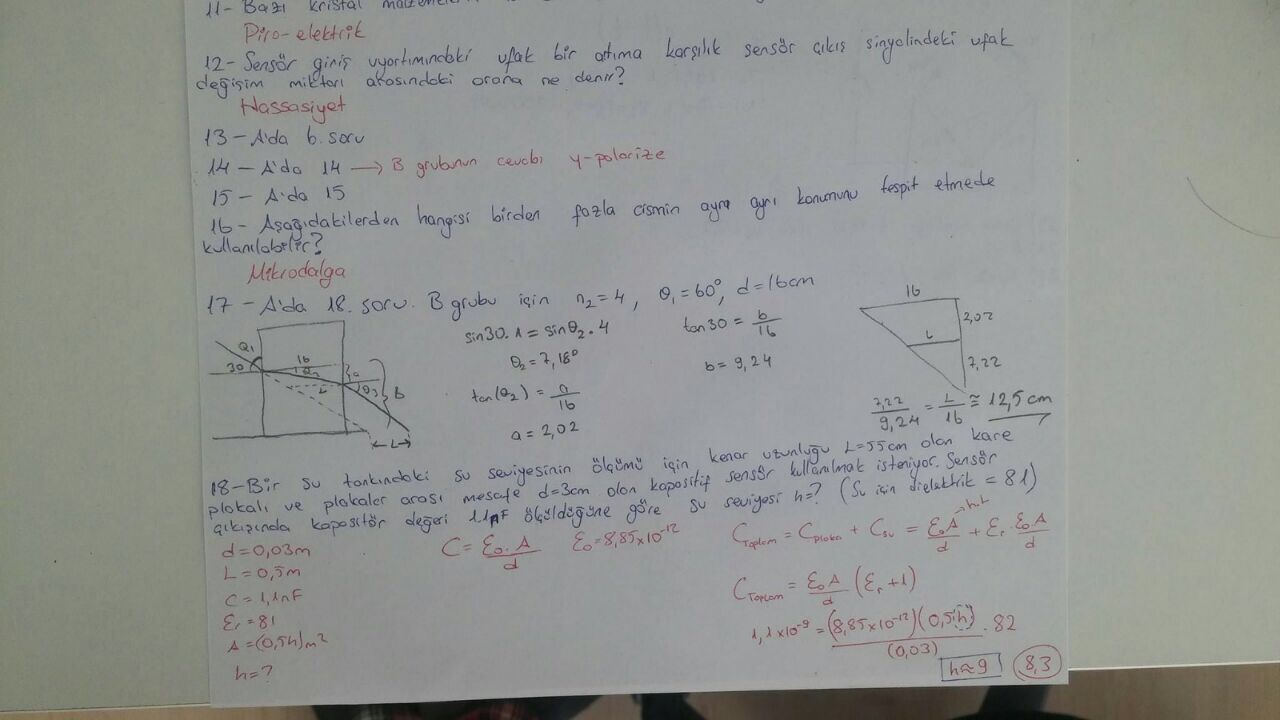 11- Bazı kristal
Piro-elektrik
12- Sensör giriş uyartımındaki ufak bir artıma karşılık sensör çıkış sinyalindeki ufak
değişim miktarı arasındaki orana ne denir?
Hassasiyet
13 - A'da 6. soru
14 - A'da 14 → B grubunun cevabı y-polarize
15 - A'da 15
16 - Aşağıdakilerden hangisi birden fazla cismin ayrı ayrı konumunu tespit etmede
kullanılabilir?
Mikrodalga
17 - A'da 18. soru. B grubu için n₂=4, θ₁=60°, d=16cm
θ₁
30
16
θ₂
a
θ₃
b
L
←L→
sin30.1 = sinθ₂.4
θ₂=7,18°
tan(θ₂) = a/16
a = 2,02
tan30 = b/16
b = 9,24
16
2,02
L
7,22
7,22/9,24 = L/16 ≅ 12,5 cm
18-Bir su tankındaki su seviyesinin ölçümü için kenar uzunluğu L=55cm olan kare
plakalı ve plakalar arası mesafe d=3cm olan kapasitif sensör kullanılmak isteniyor. Sensör
çıkışında kapasitör değeri 1.1nF ölçüldüğüne göre su seviyesi h=? (Su için dielektrik = 81)
d=0,03m
L=0,5m
C=1,1nF
Ɛr=81
A=(0,5h)m²
h=?
C = Ɛ₀.A/d Ɛ₀=8,85x10⁻¹²
CToplam = Cplaka + Csu = Ɛ₀A/d + Ɛr.Ɛ₀A/d
h.L
CToplam = Ɛ₀A/d (Ɛr+1)
1,1x10⁻⁹ = (8,85x10⁻¹²)(0,5h)/(0,03) .82
h≈9 8,3